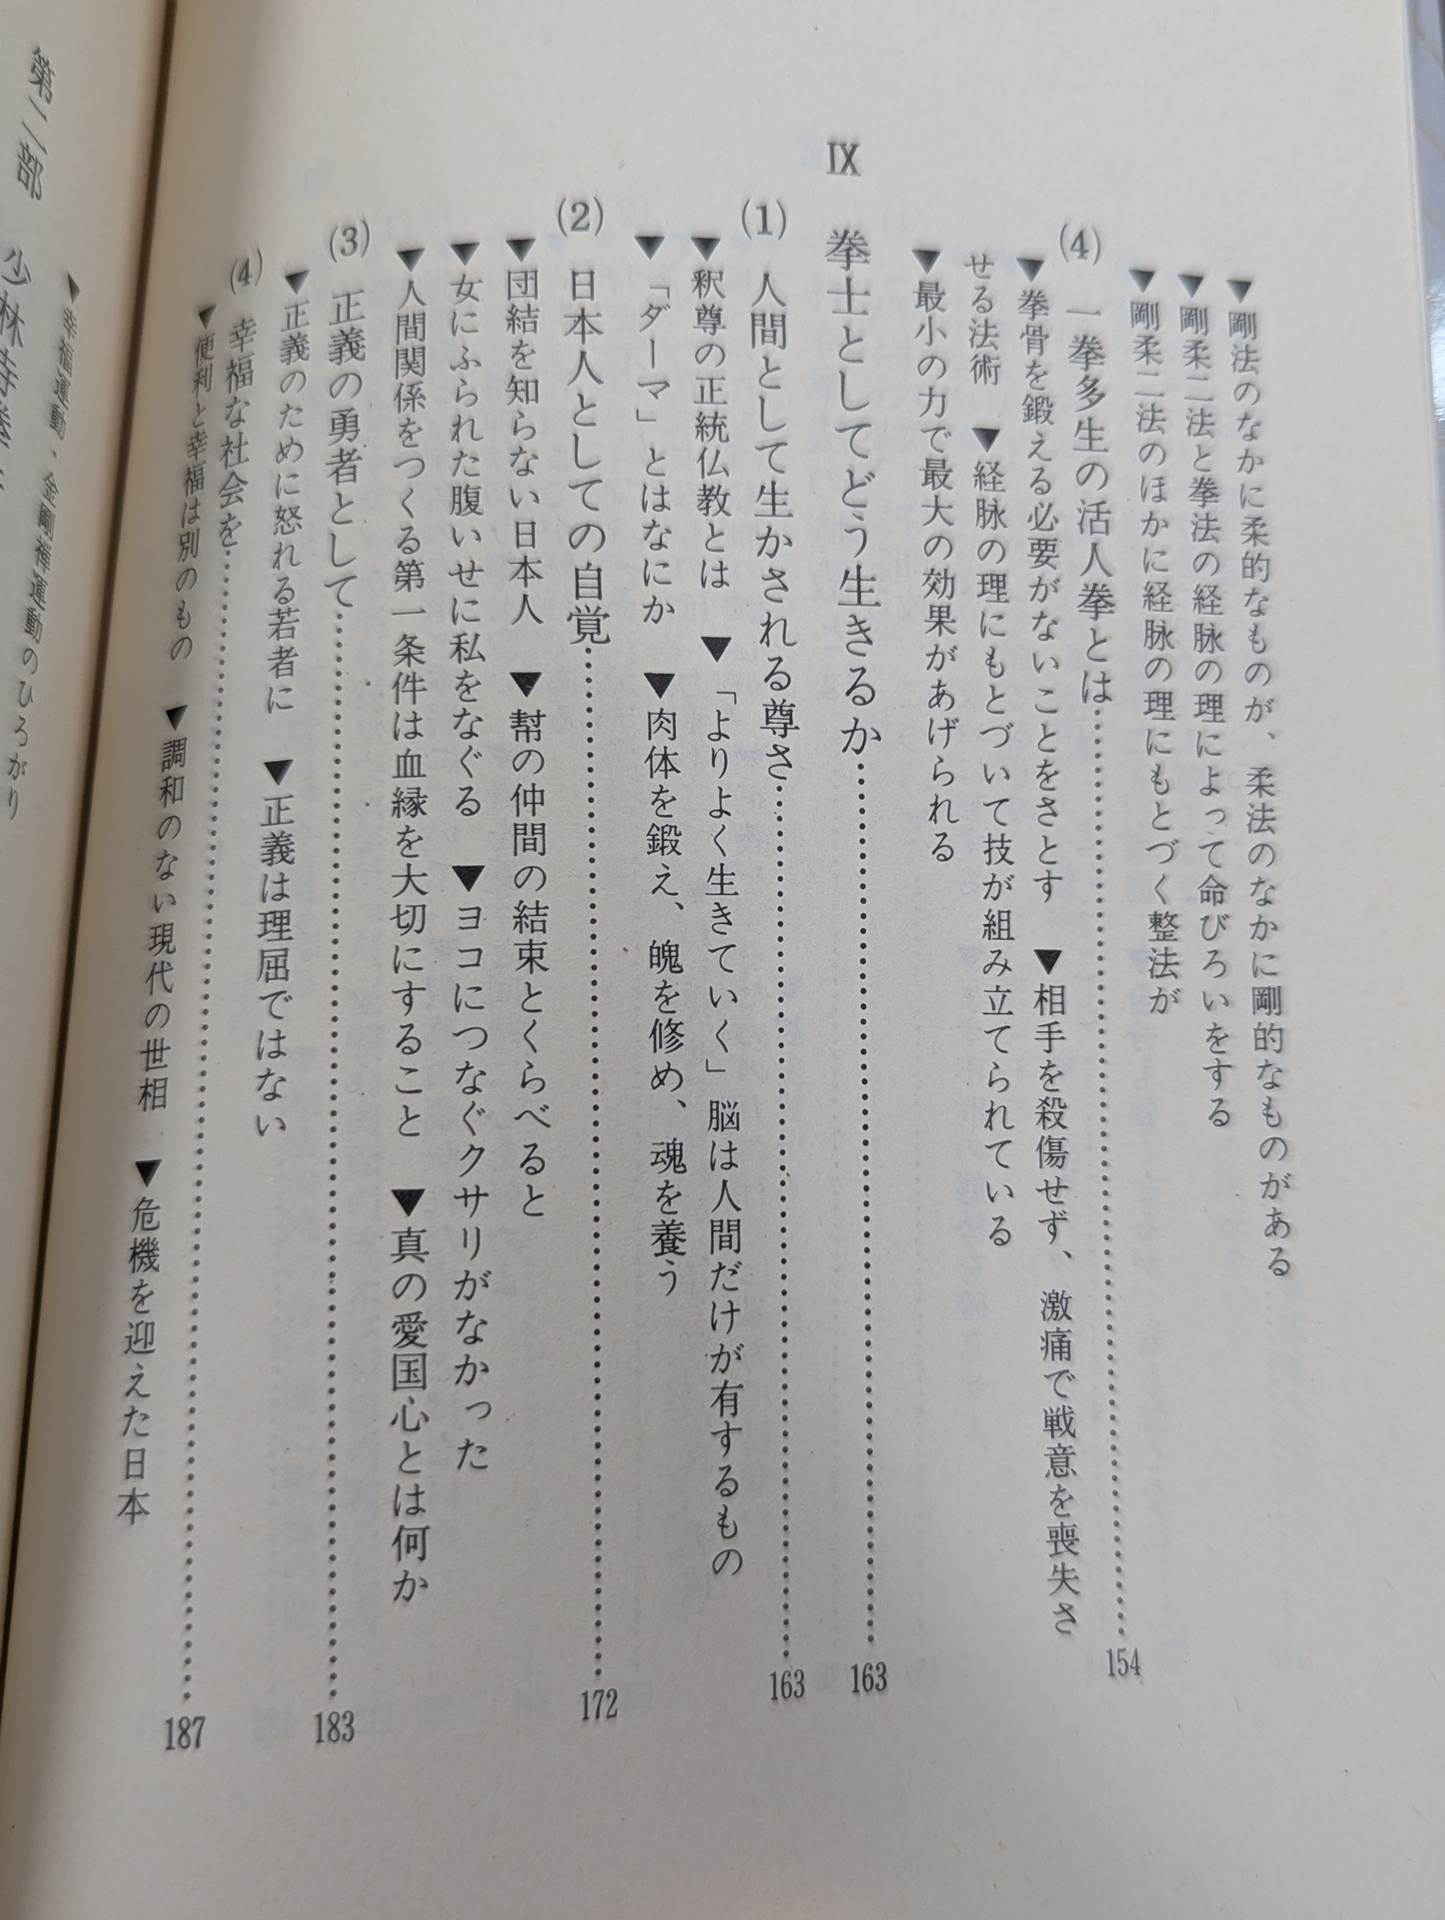 ▼剛法のなかに柔的なものが、柔法のなかに剛的なものがある
▼剛柔二法と拳法の経脉の理によって命びろいをする
▼剛柔二法のほかに経脉の理にもとづく整法が
(4) 一拳多生の活人拳とは……154
▼拳骨を鍛える必要がないことをさとす ▼相手を殺傷せず、激痛で戦意を喪失さ
せる法術 ▼経脉の理にもとづいて技が組み立てられている
▼最小の力で最大の効果があげられる
Ⅸ 拳士としてどう生きるか……163
(1) 人間として生かされる尊さ……163
▼釈尊の正統仏教とは ▼「よりよく生きていく」脳は人間だけが有するもの
▼「ダーマ」とはなにか ▼肉体を鍛え、魄を修め、魂を養う
(2) 日本人としての自覚……172
▼団結を知らない日本人 ▼幇の仲間の結束とくらべると
▼女にふられた腹いせに私をなぐる ▼ヨコにつなぐクサリがなかった
▼人間関係をつくる第一条件は血縁を大切にすること ▼真の愛国心とは何か
(3) 正義の勇者として……183
▼正義のために怒れる若者に ▼正義は理屈ではない
(4) 幸福な社会を……187
▼便利と幸福は別のもの ▼調和のない現代の世相 ▼危機を迎えた日本
▼幸福運動、金剛禅運動のひろがり
第二部 少林寺拳